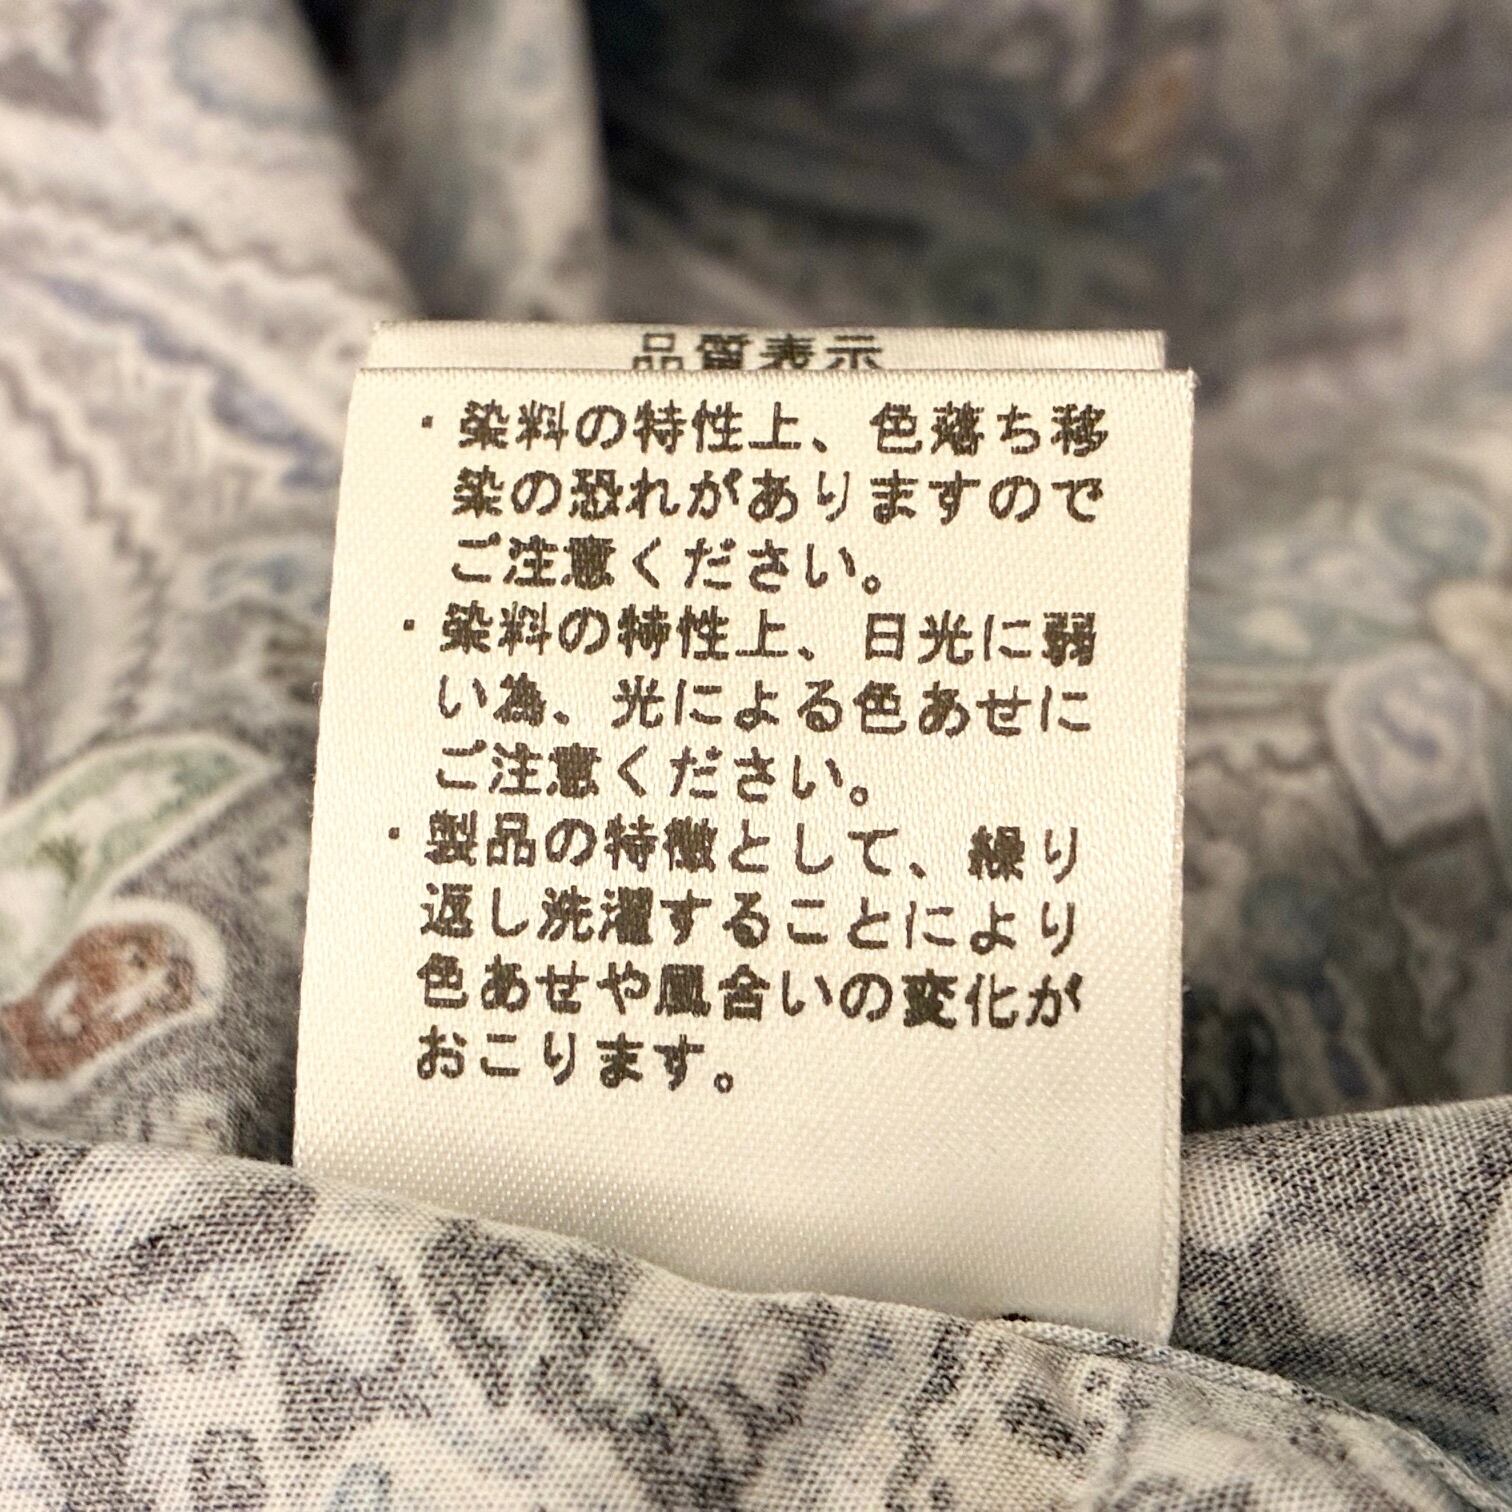 品質表示
・染料の特性上、色落ち移
染の恐れがありますので
ご注意ください。
・染料の特性上、日光に弱
い為、光による色あせに
ご注意ください。
・製品の特徴として、繰り
返し洗濯することにより
色あせや風合いの変化が
おこります。